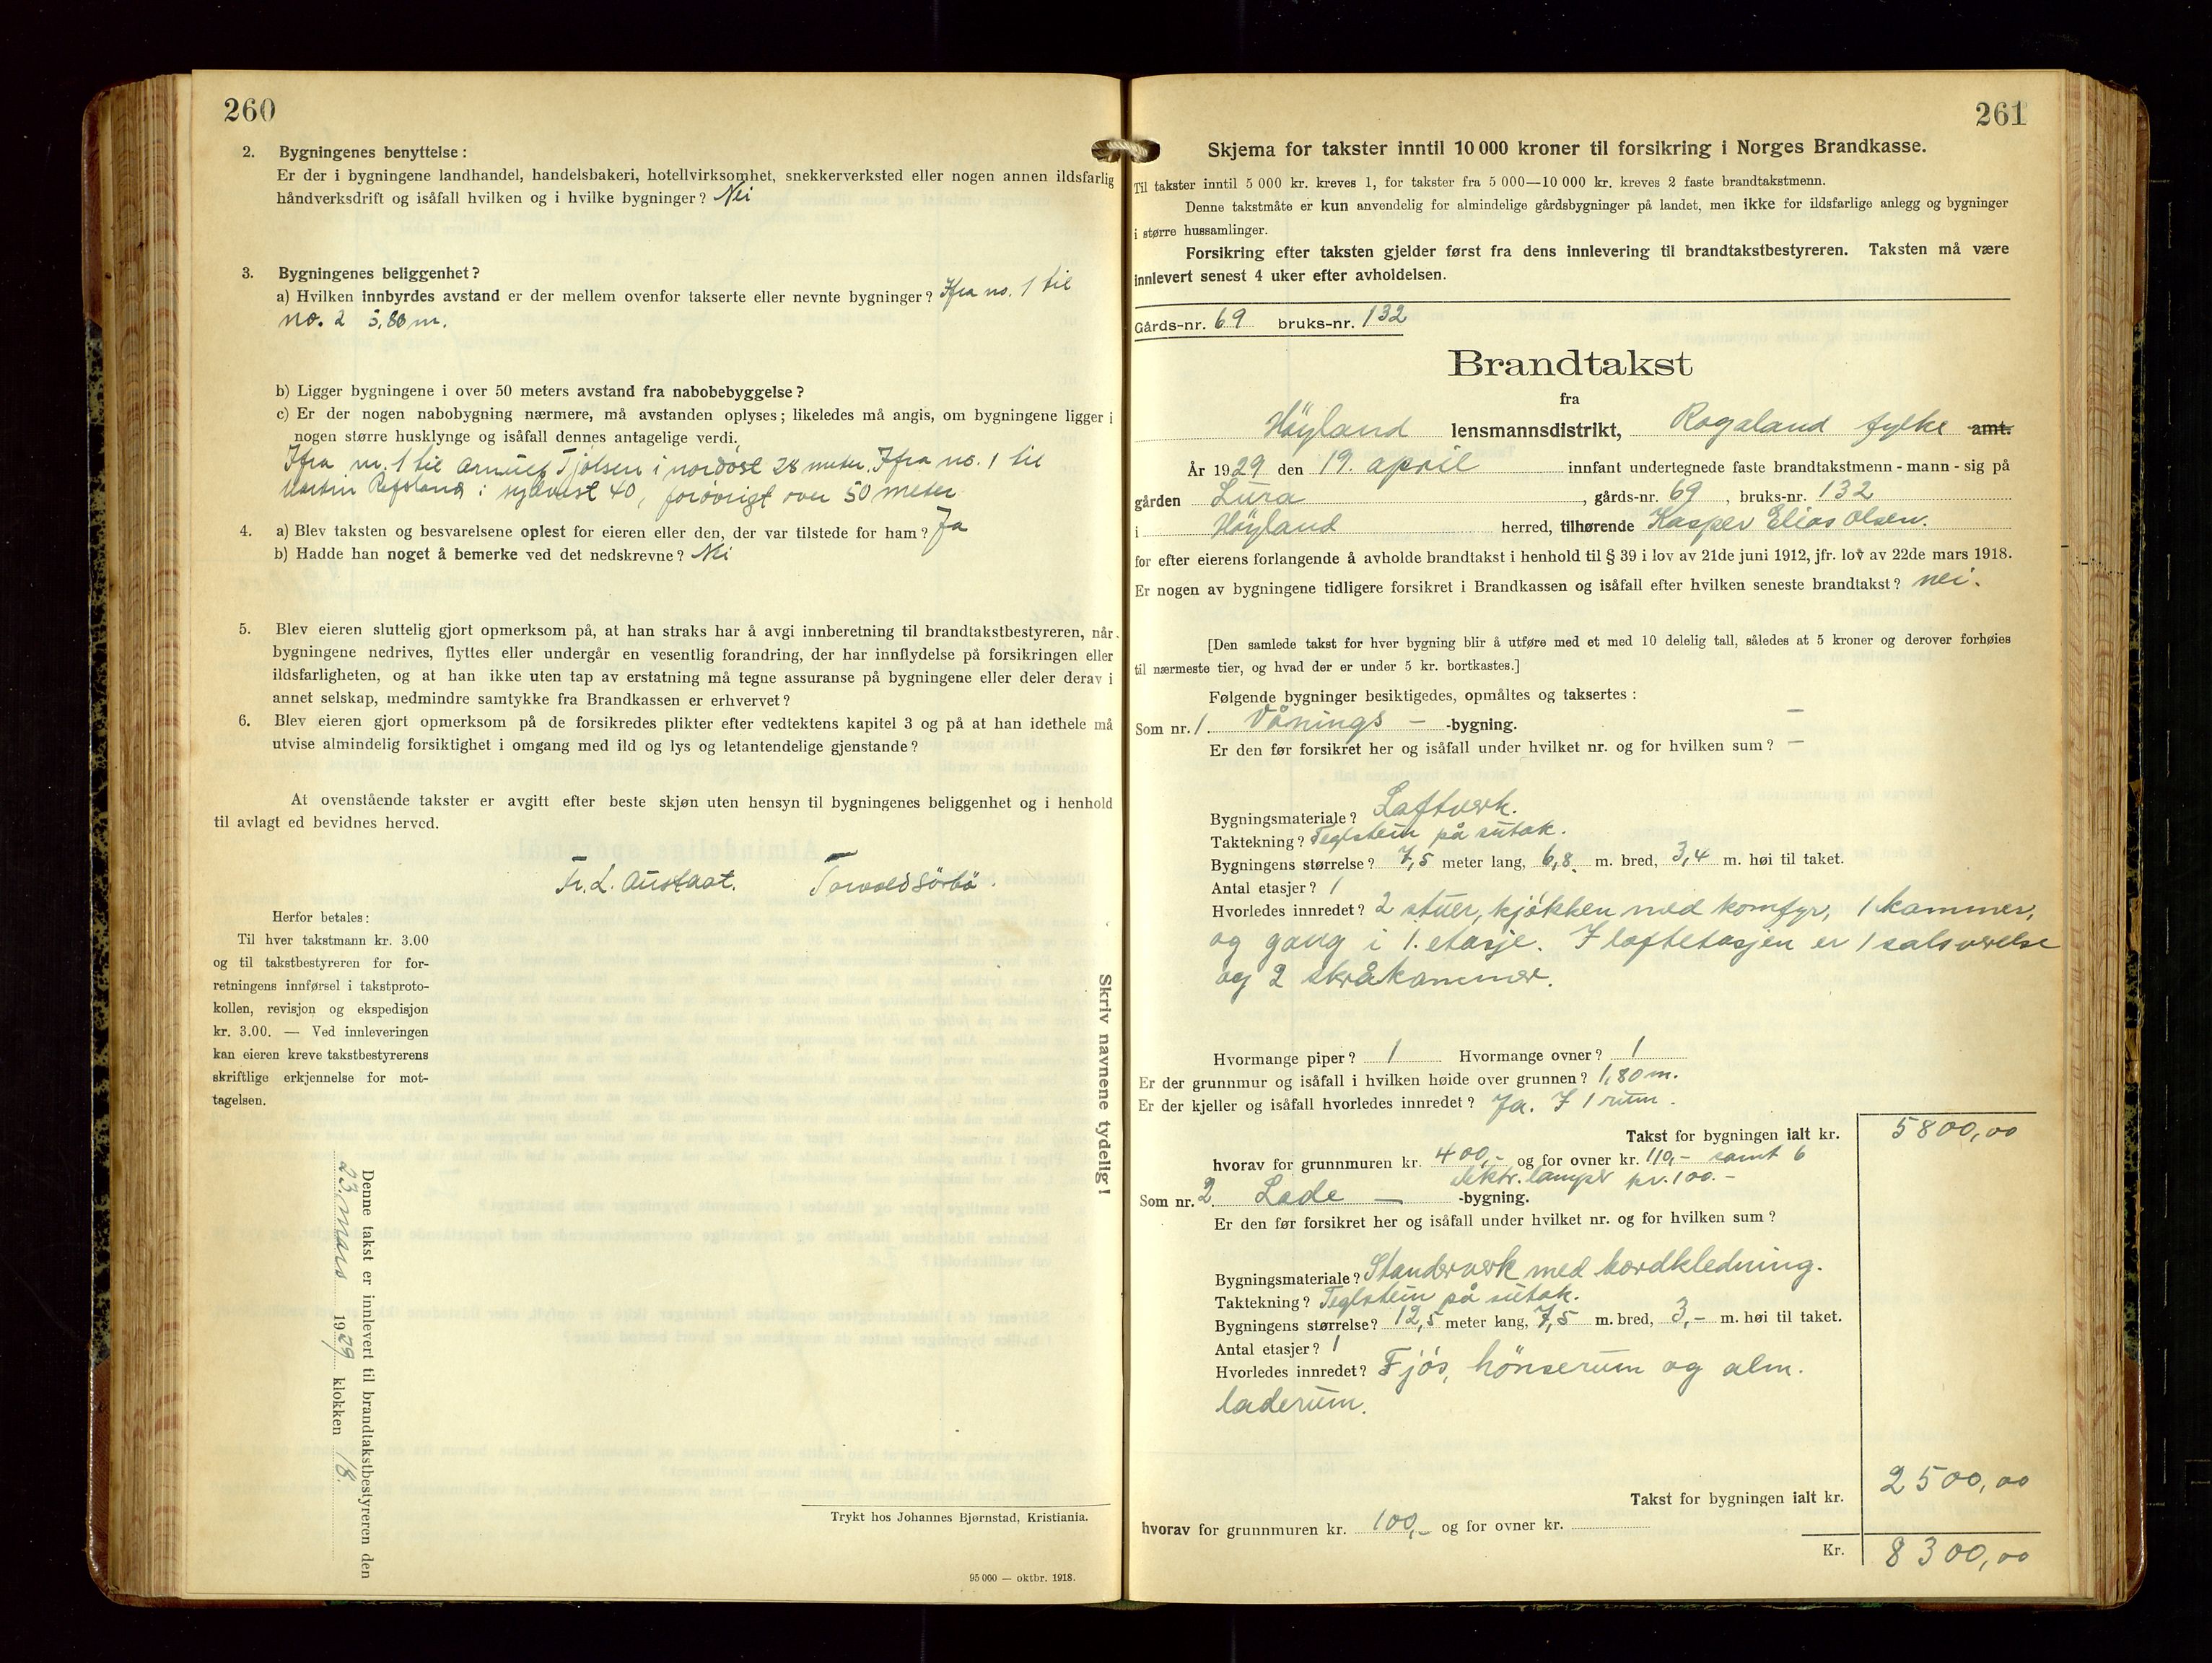 260
2. Bygningenes benyttelse:
Er der i bygningene landhandel, handelsbakeri, hotellvirksomhet, snekkerverksted eller nogen annen ildsfarlig
håndverksdrift og isåfall hvilken og i hvilke bygninger? Nei
3. Bygningenes beliggenhet?
a) Hvilken innbyrdes avstand er der mellem ovenfor takserte eller nevnte bygninger? Ifra no. 1 til
no. 2 5,80 m.
b) Ligger bygningene i over 50 meters avstand fra nabobebyggelse?
c) Er der nogen nabobygning nærmere, må avstanden oplyses; likeledes må angis, om bygningene ligger i
nogen større husklynge og isåfall dennes antagelige verdi.
Ifra nr. 1 til Tjölsen i nordöst 28 meter. Ifra no. 1 til
Martin Refsland i sydvest 40, forövrigt over 50 meter
4. a) Blev taksten og besvarelsene oplest for eieren eller den, der var tilstede for ham? Ja
b) Hadde han noget å bemerke ved det nedskrevne? Nei
5. Blev eieren sluttelig gjort opmerksom på, at han straks har å avgi innberetning til brandtakstbestyreren, når
bygningene nedrives, flyttes eller undergår en vesentlig forandring, der har innflydelse på forsikringen eller
ildsfarligheten, og at han ikke uten tap av erstatning må tegne assuranse på bygningene eller deler derav i
annet selskap, medmindre samtykke fra Brandkassen er erhvervet?
6. Blev eieren gjort opmerksom på de forsikredes plikter efter vedtektens kapitel 3 og på at han idethele må
utvise almindelig forsiktighet i omgang med ild og lys og letantendelige gjenstande?
At ovenstående takster er avgitt efter beste skjøn uten hensyn til bygningenes beliggenhet og i henhold
til avlagt ed bevidnes herved.
Fr. L. Austaat. Torvald Sörbö.
Herfor betales:
Til hver takstmann kr. 3.00
og til takstbestyreren for for-
retningens innførsel i takstproto-
kollen, revisjon og ekspedisjon
kr. 3.00. — Ved innleveringen
kan eieren kreve takstbestyrerens
skriftlige erkjennelse for mot-
tagelsen.
Skriv navnene tydelig!
Denne takst er innlevert til brandtakstbestyreren den
23. mars 1929 klokken 18.
Trykt hos Johannes Bjørnstad, Kristiania.
95 000 — oktbr. 1918.
261
Skjema for takster inntil 10 000 kroner til forsikring i Norges Brandkasse.
Til takster inntil 5 000 kr. kreves 1, for takster fra 5 000—10 000 kr. kreves 2 faste brandtakstmenn.
Denne takstmåte er kun anvendelig for almindelige gårdsbygninger på landet, men ikke for ildsfarlige anlegg og bygninger
i større hussamlinger.
Forsikring efter taksten gjelder først fra dens innlevering til brandtakstbestyreren. Taksten må være
innlevert senest 4 uker efter avholdelsen.
Gårds-nr. 69 bruks-nr. 132
Brandtakst
fra
Höyland lensmannsdistrikt, Rogaland fylke amt.
År 1929 den 19. april innfant undertegnede faste brandtakstmenn - mann - sig på
gården Lura, gårds-nr. 69, bruks-nr. 132
i Höyland herred, tilhørende Kasper Elias Olsen.
for efter eierens forlangende å avholde brandtakst i henhold til § 39 i lov av 21de juni 1912, jfr. lov av 22de mars 1918.
Er nogen av bygningene tidligere forsikret i Brandkassen og isåfall efter hvilken seneste brandtakst? nei.
[Den samlede takst for hver bygning blir å utføre med et med 10 delelig tall, således at 5 kroner og derover forhøies
til nærmeste tier, og hvad der er under 5 kr. bortkastes.]
Følgende bygninger besiktigedes, opmåltes og taksertes:
Som nr. 1. Vånings - -bygning. —
Er den før forsikret her og isåfall under hvilket nr. og for hvilken sum? —
Bygningsmateriale? Laftverk.
Taktekning? Teglstein på sutak.
Bygningens størrelse? 7,5 meter lang, 6,8 m. bred, 3,4 m. høi til taket.
Antal etasjer? 1
Hvorledes innredet? 2 stuer, kjökken med komfyr, 1 kammer,
og gang i 1. etasje. I loftetasjen er 1 salsværelse
og 2 skråkammer.
Hvormange piper? 1 Hvormange ovner? 1
Er der grunnmur og isåfall i hvilken høide over grunnen? 1,80 m.
Er der kjeller og isåfall hvorledes innredet? Ja. I 1 rum.
Takst for bygningen ialt kr. 5800,00
hvorav for grunnmuren kr. 400,- og for ovner kr. 110,- samt 6
elektr. lamper kr. 100.-
Som nr. 2 Lade — -bygning.
Er den før forsikret her og isåfall under hvilket nr. og for hvilken sum?
Bygningsmateriale? Standerverk med bordkledning.
Taktekning? Teglstein på sutak.
Bygningens størrelse? 12,5 meter lang, 7,5 m. bred, 3,- m. høi til taket.
Antal etasjer? 1
Hvorledes innredet? Fjös, hönserum og alm.
laderum.
Takst for bygningen ialt kr. 2500,00
hvorav for grunnmuren kr. 100,- og for ovner kr.
Kr. 8300,00